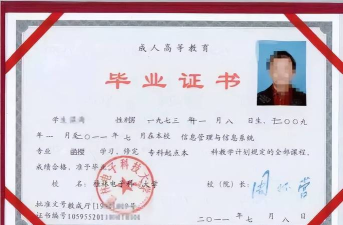 成人高等教育
毕业证书
学生 性别 一九七三年一月八日生，二〇〇九
年一月至二〇一一年七月在本校 信息管理与信息系统
专业 函授 学习，修完 专科起点本 科教学计划规定的全部课程，
成绩合格，准予毕业。
校 名：桂林电子科技大学 校（院）长：
批准文号：教成厅[1991] 号
证书编号：105955201
二〇一一年七月八日